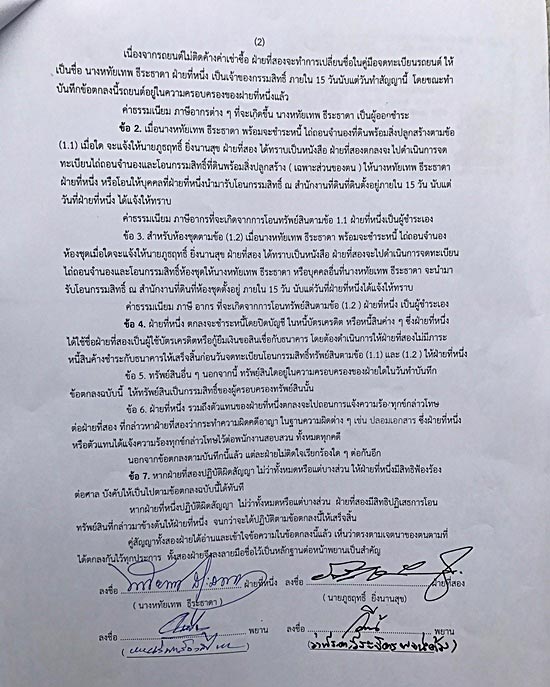 (2)
เนื่องจากรถยนต์ไม่ติดค้างค่าเช่าซื้อ ฝ่ายที่สองจะทำการเปลี่ยนชื่อในคู่มือจดทะเบียนรถยนต์ ให้
เป็นชื่อ นางหทัยเทพ ธีระธาดา ฝ่ายที่หนึ่ง เป็นเจ้าของกรรมสิทธิ์ ภายใน 15 วันนับแต่วันทำสัญญานี้ โดยขณะทำ
บันทึกข้อตกลงนี้รถยนต์อยู่ในความครอบครองของฝ่ายที่หนึ่งแล้ว
ค่าธรรมเนียม ภาษีอากรต่าง ๆ ที่จะเกิดขึ้น นางหทัยเทพ ธีระธาดา เป็นผู้ออกชำระ
ข้อ 2. เมื่อนางหทัยเทพ ธีระธาดา พร้อมจะชำระหนี้ ไถ่ถอนจำนองที่ดินพร้อมสิ่งปลูกสร้างตามข้อ
(1.1) เมื่อใด จะแจ้งให้นายภูธฤทธิ์ ยิ่งนานสุข ฝ่ายที่สอง ได้ทราบเป็นหนังสือ ฝ่ายที่สองตกลงจะไปดำเนินการจด
ทะเบียนไถ่ถอนจำนองและโอนกรรมสิทธิ์ที่ดินพร้อมสิ่งปลูกสร้าง ( เฉพาะส่วนของตน ) ให้นางหทัยเทพ ธีระธาดา
ฝ่ายที่หนึ่ง หรือโอนให้บุคคลที่ฝ่ายที่หนึ่งนำมารับโอนกรรมสิทธิ์ ณ สำนักงานที่ดินที่ดินตั้งอยู่ภายใน 15 วัน นับแต่
วันที่ฝ่ายที่หนึ่ง ได้แจ้งให้ทราบ
ค่าธรรมเนียม ภาษีอากรที่จะเกิดจากการโอนทรัพย์สินตามข้อ 1.1 ฝ่ายที่หนึ่งเป็นผู้ชำระเอง
ข้อ 3. สำหรับห้องชุดตามข้อ (1.2) เมื่อนางหทัยเทพ ธีระธาดา พร้อมจะชำระหนี้ ไถ่ถอนจำนอง
ห้องชุดเมื่อใดจะแจ้งให้นายภูธฤทธิ์ ยิ่งนานสุข ฝ่ายที่สอง ได้ทราบเป็นหนังสือ ฝ่ายที่สองจะไปดำเนินการจดทะเบียน
ไถ่ถอนจำนองและโอนกรรมสิทธิ์ห้องชุดให้นางหทัยเทพ ธีระธาดา หรือบุคคลอื่นที่นางหทัยเทพ ธีระธาดา จะนำมา
รับโอนกรรมสิทธิ์ ณ สำนักงานที่ดินที่ห้องชุดตั้งอยู่ ภายใน 15 วัน นับแต่วันที่ฝ่ายที่หนึ่งได้แจ้งให้ทราบ
ค่าธรรมเนียม ภาษี อากร ที่จะเกิดจากการโอนทรัพย์สินตามข้อ (1.2 ) ฝ่ายที่หนึ่ง เป็นผู้ชำระเอง
ข้อ 4. ฝ่ายที่หนึ่ง ตกลงจะชำระหนี้โดยปิดบัญชี ในหนี้บัตรเครดิต หรือหนี้สินต่าง ๆ ซึ่งฝ่ายที่หนึ่ง
ได้ใช้ชื่อฝ่ายที่สองเป็นผู้ใช้บัตรเครดิตหรือกู้ยืมเงินขอสินเชื่อกับธนาคาร โดยต้องดำเนินการให้ฝ่ายที่สองไม่มีภาระ
หนี้สินค้างชำระกับธนาคารให้เสร็จสิ้นก่อนวันจดทะเบียนโอนกรรมสิทธิ์ทรัพย์สินตามข้อ (1.1) และ (1.2 ) ให้ฝ่ายที่หนึ่ง
ข้อ 5. ทรัพย์สินอื่น ๆ นอกจากนี้ ทรัพย์สินใดอยู่ในความครอบครองของฝ่ายใดในวันทำบันทึก
ข้อตกลงฉบับนี้ ให้ทรัพย์สินเป็นกรรมสิทธิ์ของผู้ครอบครองทรัพย์สินนั้น
ข้อ 6. ฝ่ายที่หนึ่ง รวมถึงตัวแทนของฝ่ายที่หนึ่งตกลงจะไปถอนการแจ้งความร้องทุกข์กล่าวโทษ
ต่อฝ่ายที่สอง ที่กล่าวหาฝ่ายที่สองว่ากระทำความผิดคดีอาญา ในฐานความผิดต่าง ๆ เช่น ปลอมเอกสาร ซึ่งฝ่ายที่หนึ่ง
หรือตัวแทนได้แจ้งความร้องทุกข์กล่าวโทษไว้ต่อพนักงานสอบสวน ทั้งหมดทุกคดี
นอกจากข้อตกลงตามบันทึกนี้แล้ว แต่ละฝ่ายไม่ติดใจเรียกร้องใด ๆ ต่อกันอีก
ข้อ 7. หากฝ่ายที่สองปฏิบัติผิดสัญญา ไม่ว่าทั้งหมดหรือแต่บางส่วน ให้ฝ่ายที่หนึ่งมีสิทธิฟ้องร้อง
ต่อศาล บังคับให้เป็นไปตามข้อตกลงฉบับนี้ได้ทันที
หากฝ่ายที่หนึ่งปฏิบัติผิดสัญญา ไม่ว่าทั้งหมดหรือแต่บางส่วน ฝ่ายที่สองมีสิทธิปฏิเสธการโอน
ทรัพย์สินที่กล่าวมาข้างต้นให้ฝ่ายที่หนึ่ง จนกว่าจะได้ปฏิบัติตามข้อตกลงนี้ให้เสร็จสิ้น
คู่สัญญาทั้งสองฝ่ายได้อ่านและเข้าใจข้อความในข้อตกลงนี้แล้ว เห็นว่าตรงตามเจตนาของตนตามที่
ได้ตกลงกันไว้ทุกประการ ทั้งสองฝ่ายจึงลงลายมือชื่อไว้เป็นหลักฐานต่อหน้าพยานเป็นสำคัญ
ลงชื่อ ฝ่ายที่หนึ่ง ลงชื่อ ฝ่ายที่สอง
( นางหทัยเทพ ธีระธาดา ) ( นายภูธฤทธิ์ ยิ่งนานสุข )
ลงชื่อ พยาน ลงชื่อ พยาน